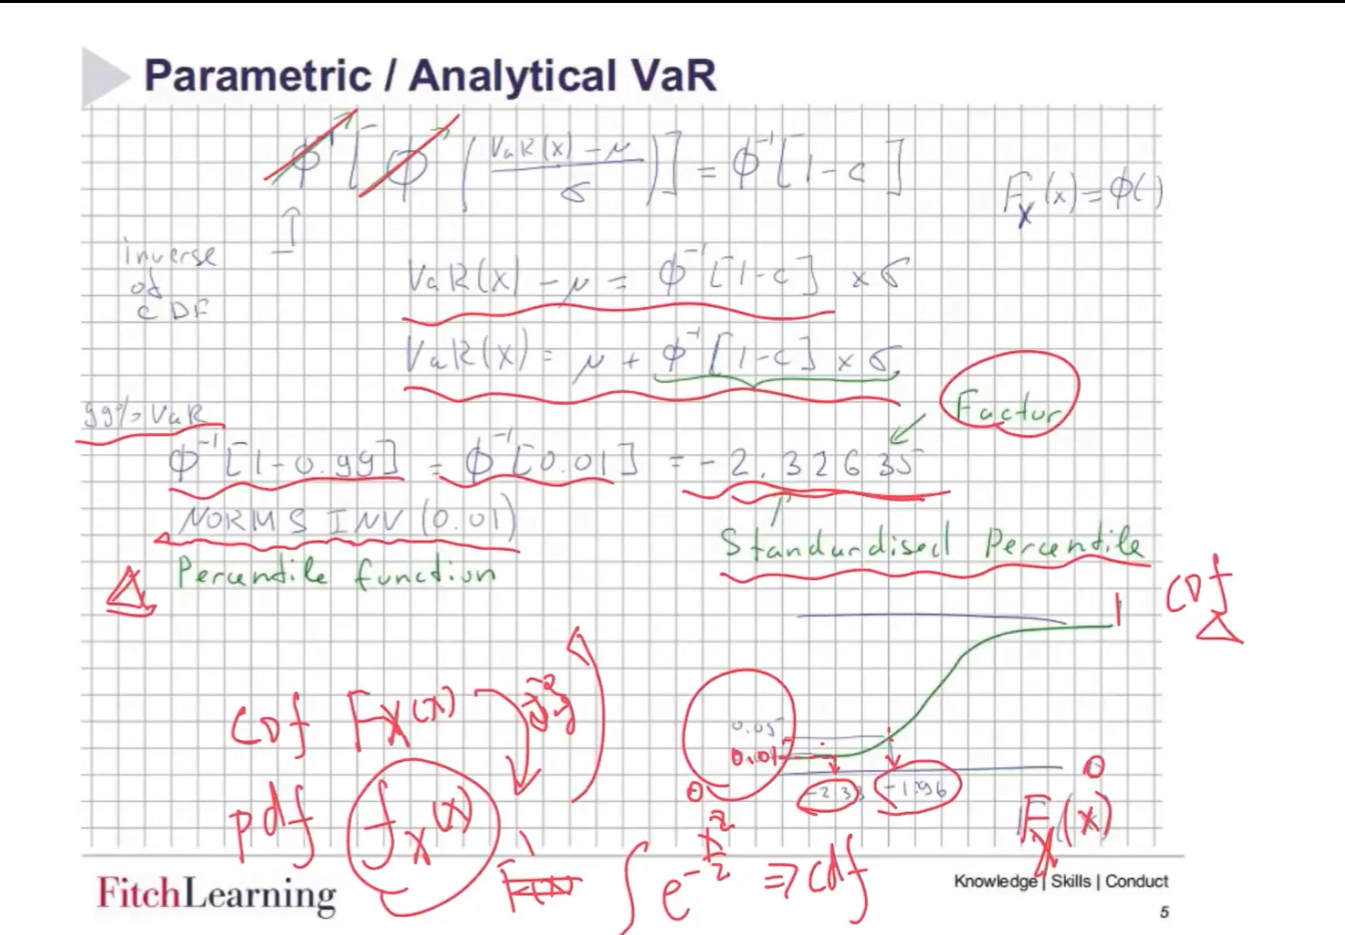 Parametric / Analytical VaR
Φ⁻¹[Φ((VaR(x) − μ)/σ)] = Φ⁻¹[1-c]
F_X(x) = Φ()
inverse
of
CDF
VaR(x) − μ = Φ⁻¹[1-c] × σ
VaR(x) = μ + Φ⁻¹[1-c] × σ
Factor
99% VaR
Φ⁻¹[1-0.99] = Φ⁻¹[0.01] = -2.32635
NORMSINV(0.01)
Standardised Percentile
Percentile function
CDf
1
CDf F_X(x)
0.05
0.01
0
0
-2.33
-1.96
pdf f_X(x)
F_X(x)
∫ e^(-x²/2) ⇒ cdf
FitchLearning
Knowledge | Skills | Conduct
5